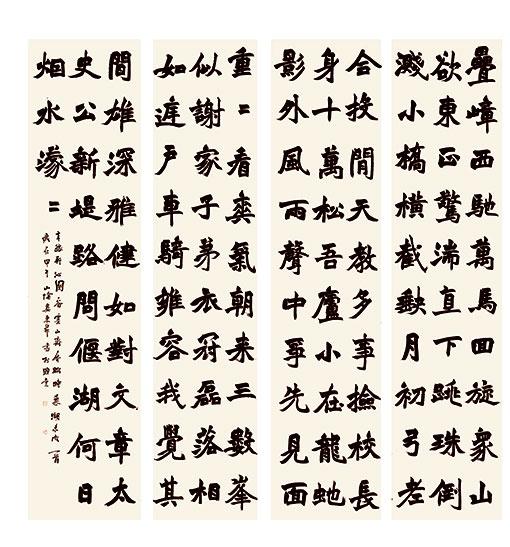 疊嶂西馳萬馬回旋衆山
欲東正驚湍直下跳珠倒
濺小橋橫截缺月初弓老
合投閒天教多事撿校長
身十萬松吾廬小在龍蛇
影外風雨聲中爭先見面
重=看爽氣朝來三數峯
似謝家子弟衣冠磊落相
如庭戶車騎雍容我覺其
間雄深雅健如對文章太
史公新堤路問偃湖何日
烟水濛=
辛稼軒沁園春靈山齊庵賦時築偃湖未成一首
歲在甲午山海